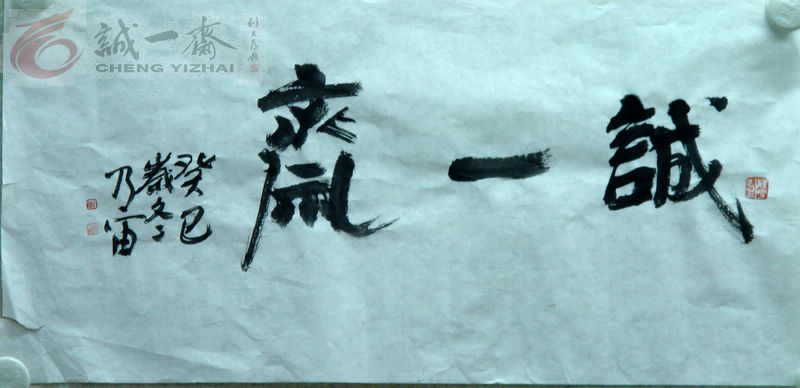 誠一齋
癸巳
歲冬
乃宙
誠一齋
CHENG YIZHAI